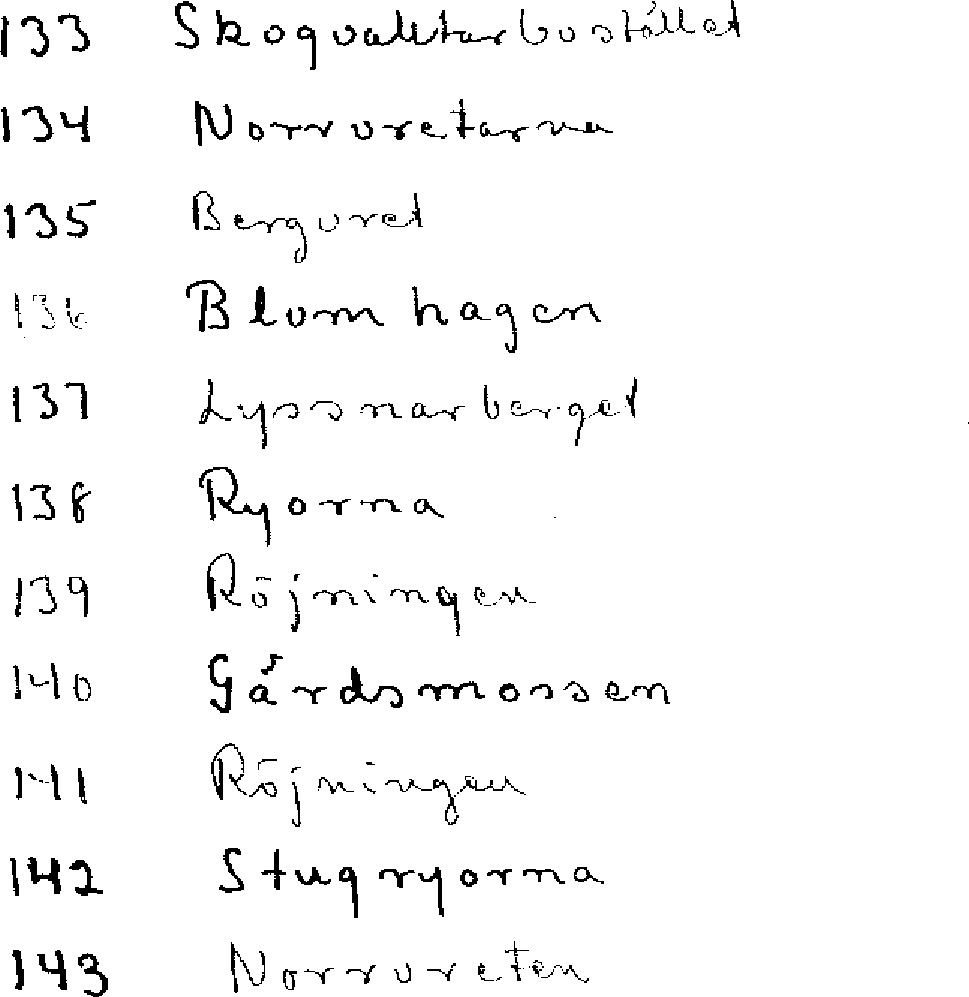 133 Skogvaktarbostället
134 Norrvretarna
135 Bergvret
136 Blomhagen
137 Lyssnarberget
138 Ryorna
139 Röjningen
140 Gårdsmossen
141 Röjningen
142 Stugryorna
143 Norrvreten